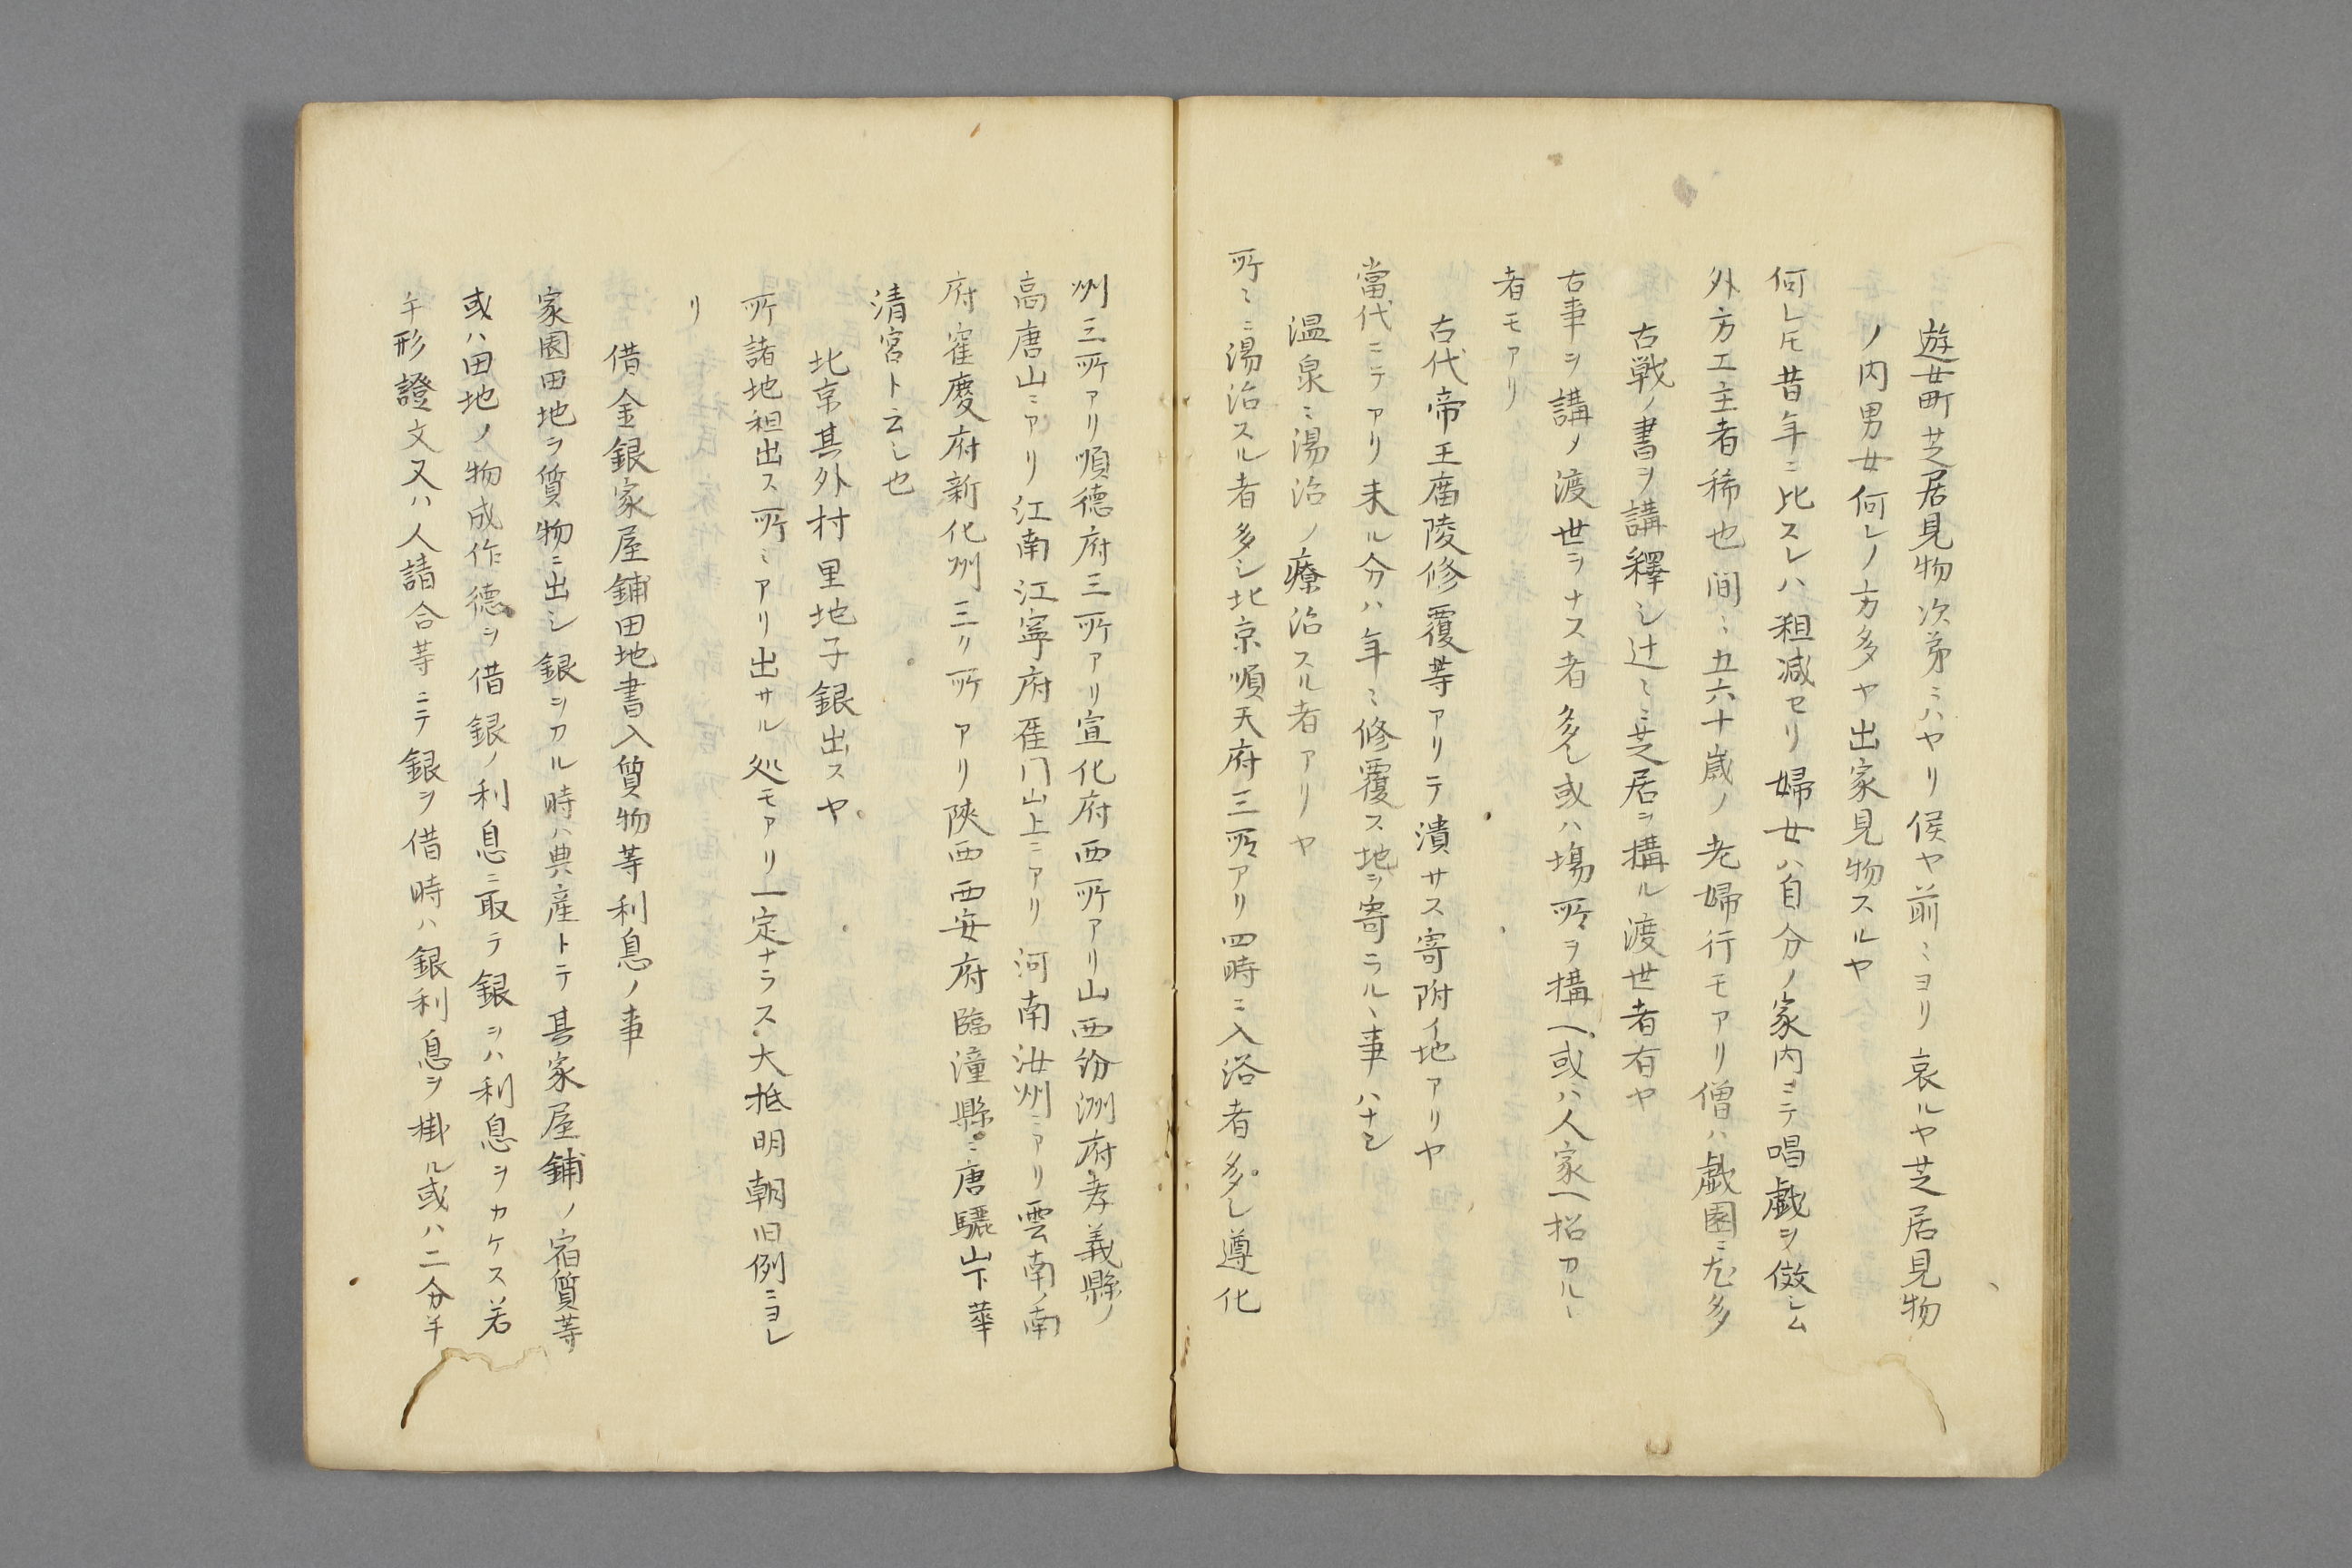 遊女町芝居見物次第ニハヤリ侯ヤ前ミヨリ哀ルヤ芝居見物
ノ内男女何レノ方多ヤ出家見物スルヤ
何レモ昔年ニ比スレハ粗减セリ婦女ハ自分ノ家内ニテ唱戯ヲ倣シム
外方エ主者稀也间ミ五六十歳ノ老婦行モアリ僧ハ戯園ニ尤多
古戦ノ書ヲ講釋シ辻ミニ芝居ヲ搆ル渡世者有ヤ
古事ヲ講ノ渡世ヲナス者多し或ハ塲所ヲ搆ヘ或ハ人家ヘ招カルヽ
者モアリ
古代帝王廟陵修覆等アリテ潰サス寄附ノ地アリヤ
當代ニテアリ未ル分ハ年ミ修覆ス地ヲ寄ラルヽ事ハナシ
温泉ニ湯治ノ療治スル者アリヤ
所ミニ湯治スル者多シ北京順天府三所アリ四時ニ入浴者多し遵化
州三所アリ順德府三所アリ宣化府西所アリ山西汾洲府孝義縣ノ
高唐山ニアリ江南江寧府雁门山上ニアリ河南汝州ニアリ雲南ノ南
府寉慶府新化州三リ所アリ陝西西安府臨潼縣ニ唐驪山下華
清宮ト云し也
北京其外村里地子銀出スヤ
所諸地租出ス所ミアリ出サル処モアリ一定ナラス大抵明朝旧例ニヨレ
リ
借金銀家屋鋪田地書入質物等利息ノ事
家園田地ヲ質物ニ出シ銀ヲカル時ハ典産トテ其家屋鋪ノ宿質等
或ハ田地ノ物成作德ヲ借銀ノ利息ニ取テ銀ヲハ利息ヲカケス若
手形證文又ハ人請合等ニテ銀ヲ借時ハ銀利息ヲ掛ル或ハ二分半